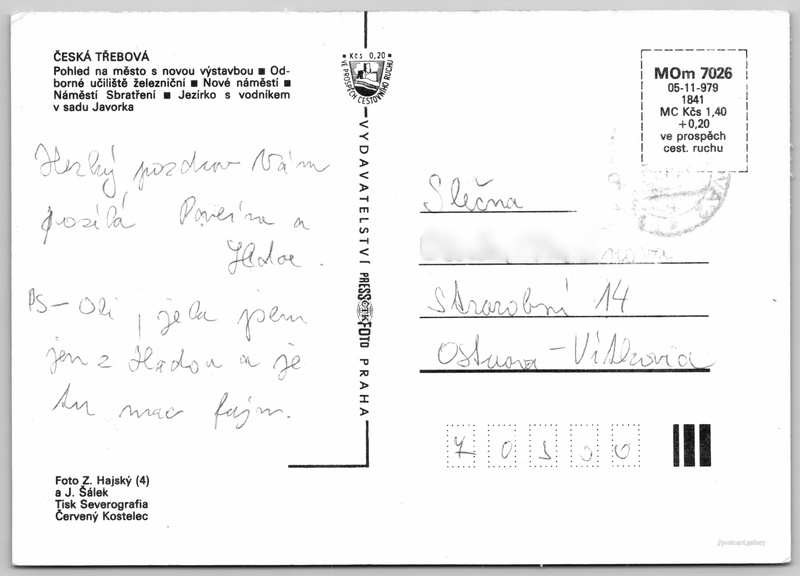 ČESKÁ TŘEBOVÁ
Pohled na město s novou výstavbou ■ Od-
borné učiliště železniční ■ Nové náměstí ■
Náměstí Sbratření ■ Jezírko s vodníkem
v sadu Javorka
Hezký pozdrav Vám
posílá Pavlína a
PS – Oli, jela jsem
jen z a je
tu moc fajn.
Foto Z. Hajský (4)
a J. Šálek
Tisk Severografia
Červený Kostelec
Kčs 0,20
VE PROSPĚCH CESTOVNÍHO RUCHU
VYDAVATELSTVÍ PRESSFOTO PRAHA
ČTK
MOm 7026
05-11-979
1841
MC Kčs 1,40
+0,20
ve prospěch
cest. ruchu
Slečna
14
Ostrava – Vítkovice
70300
postcard.gallery